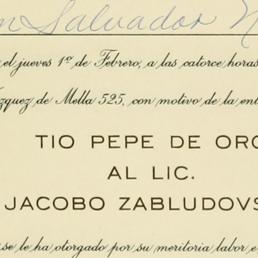 n Salvador N
el jueves 1º de Febrero, a las catorce horas
zquez de Mella 525, con motivo de la ent
TIO PEPE DE ORO
AL LIC.
JACOBO ZABLUDOVS
se le ha otorgado por su meritoria labor e